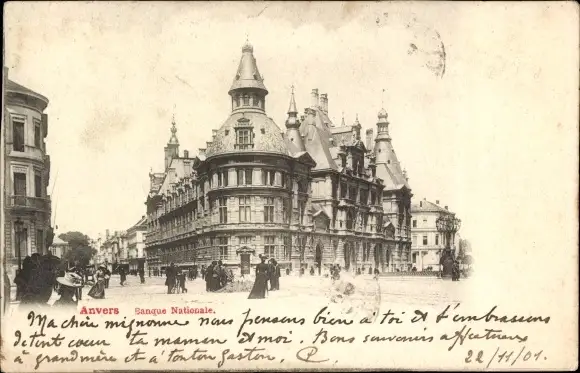 Anvers Banque Nationale.
Ma chère mignonne nous pensons bien à toi et t'embrassons
de tout coeur ta maman et moi. Bons souvenirs affectueux
à grand mère et à tonton gaston. 22/11/01.